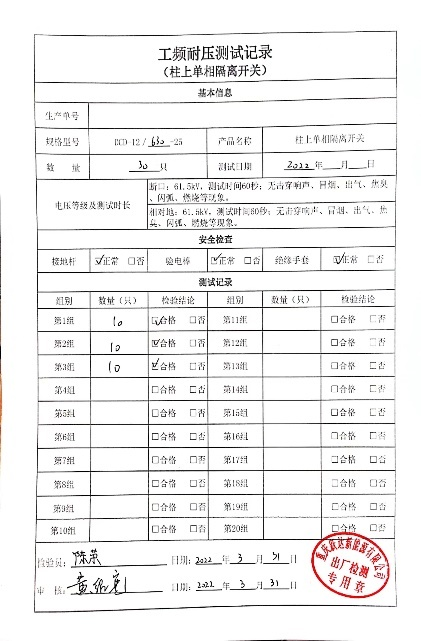 工频耐压测试记录
（柱上单相隔离开关）
基本信息
生产单号
规格型号 DCD-12/630-25 产品名称 柱上单相隔离开关
数 量 30 只 测试日期 2022 年 月 日
电压等级及测试时长 断口：61.5kV，测试时间60秒；无击穿响声、冒烟、出气、焦臭、闪弧、燃烧等现象。
相对地：61.5kV，测试时间60秒；无击穿响声、冒烟、出气、焦臭、闪弧、燃烧等现象。
安全检查
接地杆 ☑正常 □否 验电棒 ☑正常 □否 绝缘手套 ☑正常 □否
测试记录
组别 数量（只） 检验结论 组别 数量（只） 检验结论
第1组 10 ☑合格 □否 第11组 □合格 □否
第2组 10 ☑合格 □否 第12组 □合格 □否
第3组 10 ☑合格 □否 第13组 □合格 □否
第4组 □合格 □否 第14组 □合格 □否
第5组 □合格 □否 第15组 □合格 □否
第6组 □合格 □否 第16组 □合格 □否
第7组 □合格 □否 第17组 □合格 □否
第8组 □合格 □否 第18组 □合格 □否
第9组 □合格 □否 第19组 □合格 □否
第10组 □合格 □否 第20组 □合格 □否
检验员： 日期：2022 年 3 月 31 日
审 核： 日期：2022 年 3 月 31 日
出厂检测
专用章